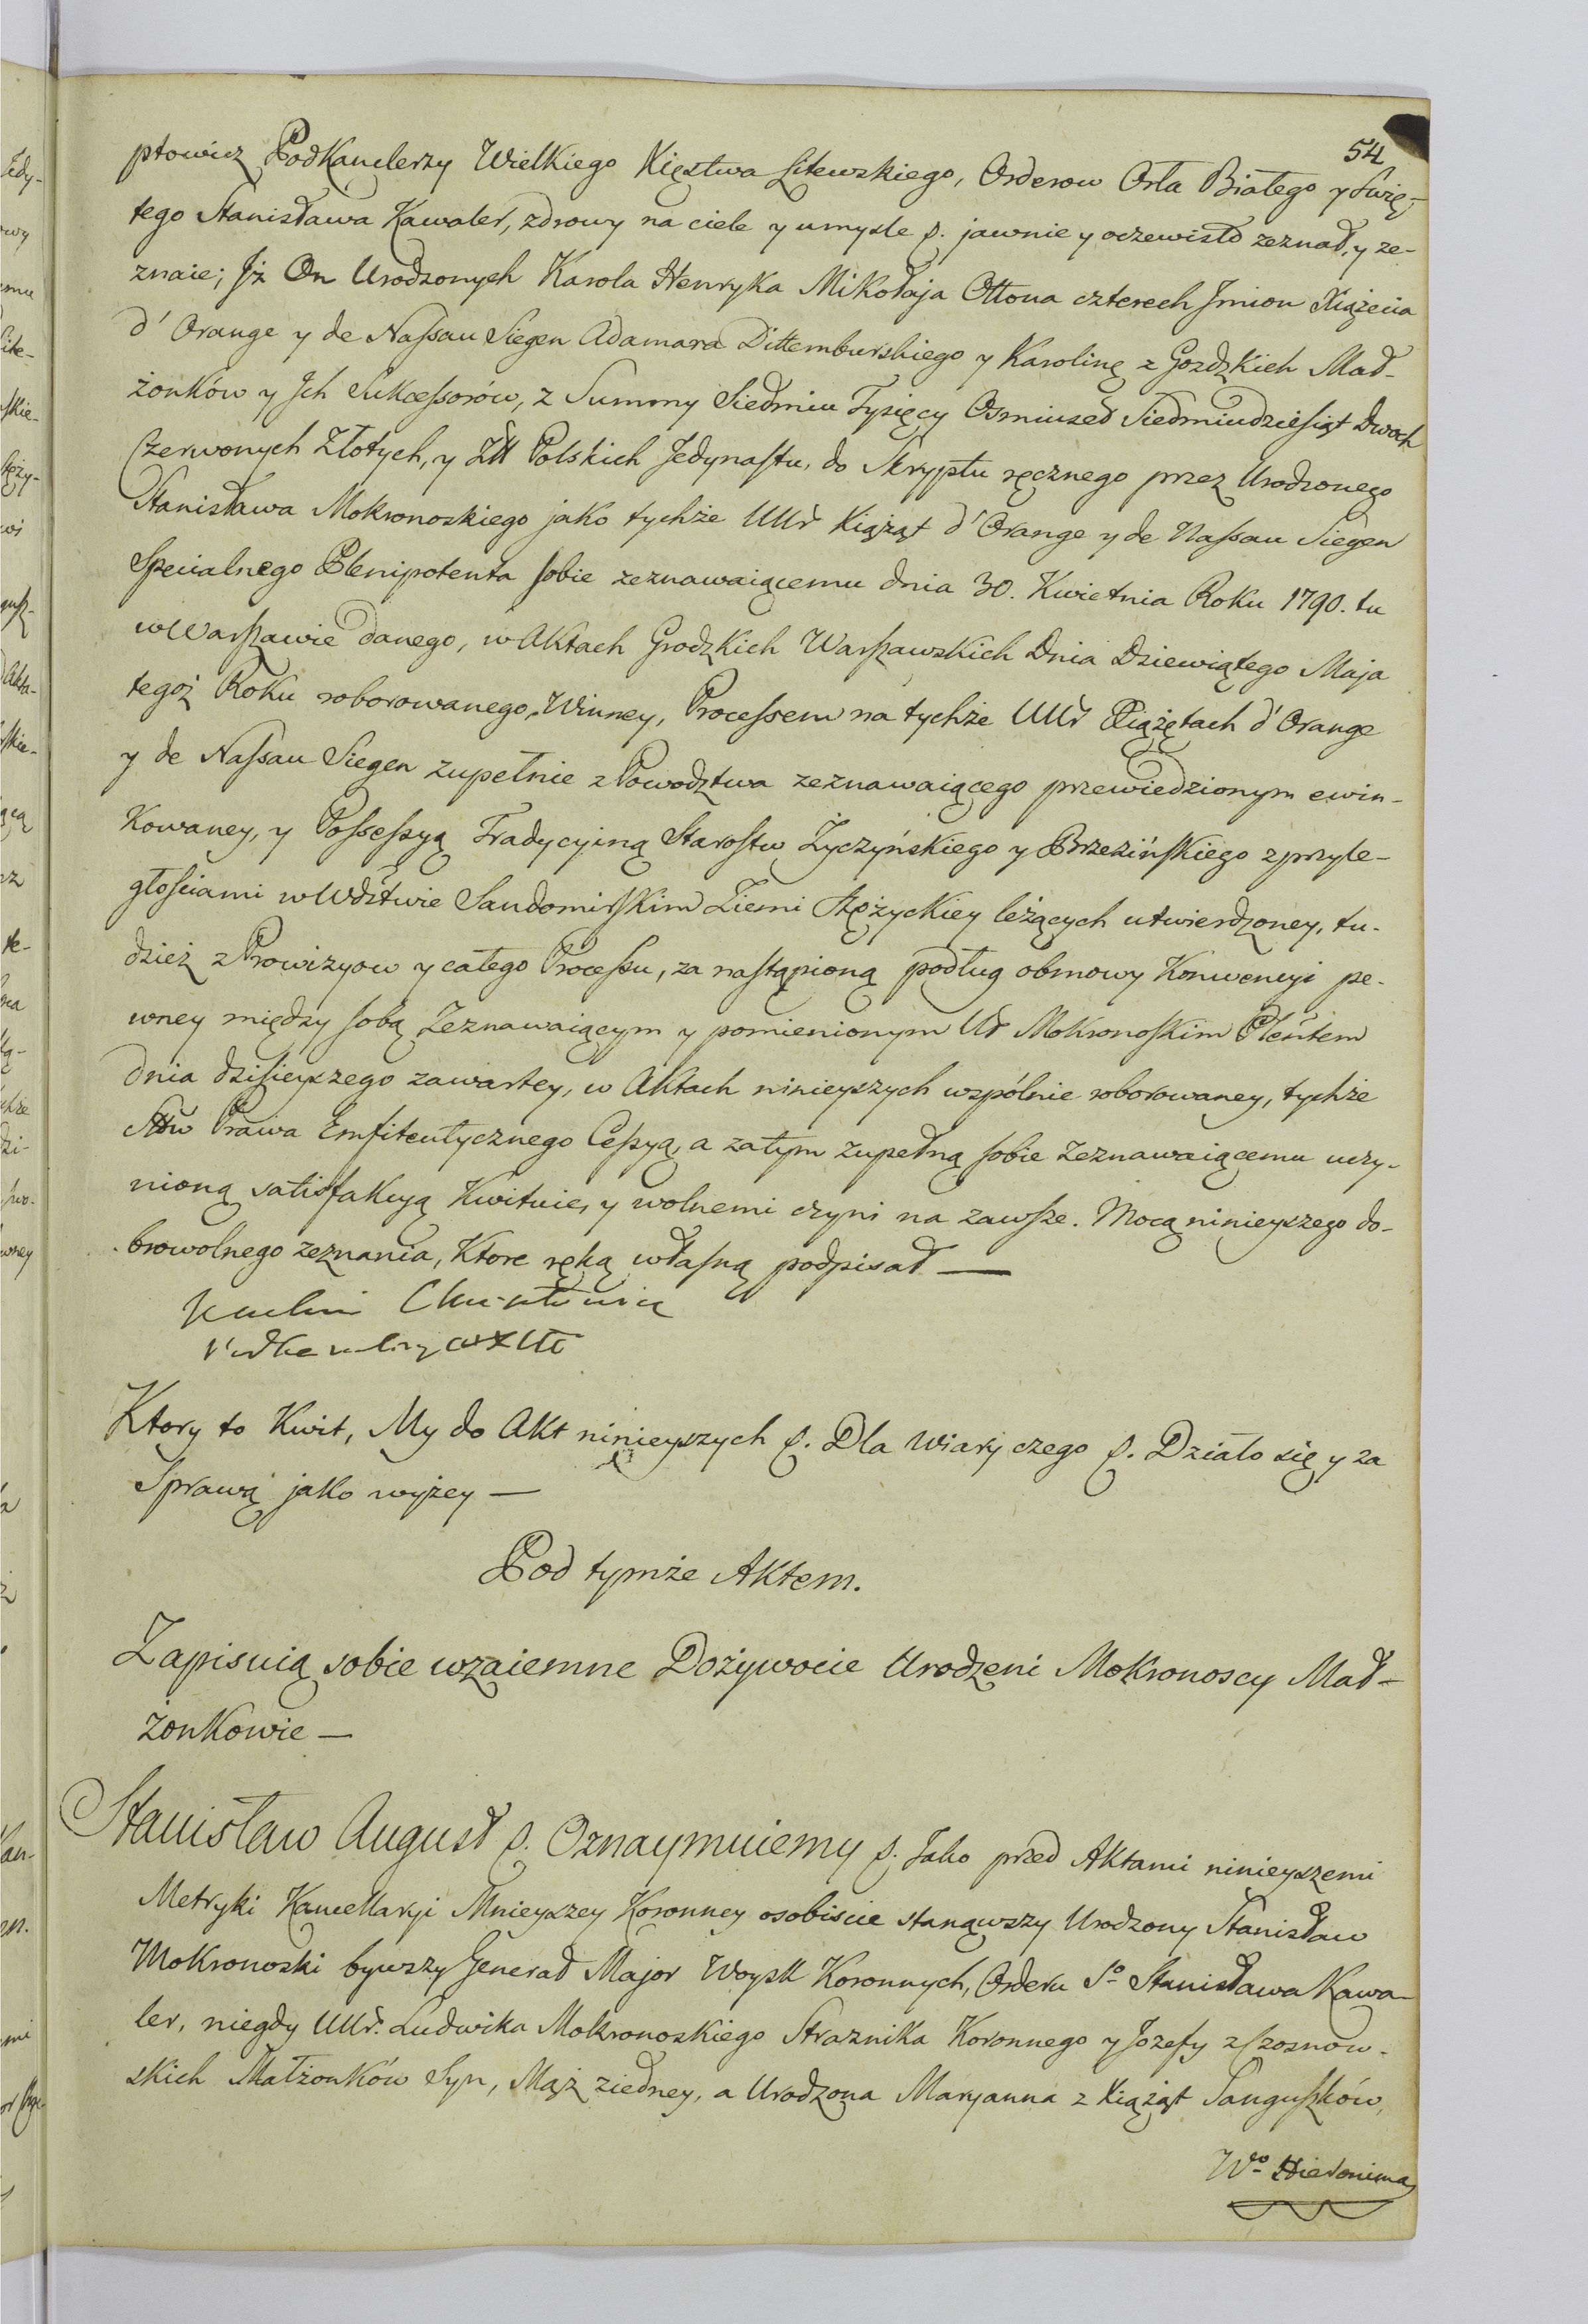 54
ptowicz Podkanclerzy Wielkiego Xięstwa Litewskiego, Orderow Orła Białego y Swię-
tego Stanisława Kawaler, zdrowy na ciele y umysle p. jawnie y oczewisto zeznał, y ze-
znaie; Jż On Urodzonych Karola Henryka Mikołaja Ottona czterech Jmion Xiążęcia
d' Orange y de Naſsau Siegen Adamara Dittemburskiego y Karolinę z Gozdzkich Mał-
żonków y Jch Sukceſsorów, z Summy Siedmiu Tysięcy Osmiuset Siedmiudzieſiąt Dwoch
Czerwonych Złotych, y Złł Polskich Jedynaſtu, do Skryptu ręcznego przez Urodzonego
Stanisława Mokronoskiego jako tychże UUr Xiążąt d'Orange y de Naſsau Siegen
Specialnego Plenipotenta ſobie zeznawaiącemu dnia 30. Kwietnia Roku 1790. tu
w Warſzawie danego, w Aktach Grodzkich Warſzawskich Dnia Dziewiątego Maja
tegoż Roku roborowanego, Winney, Proceſsem na tychże UUr Xiążętach d'Orange
y de Naſsau Siegen zupełnie z Powodztwa zeznawaiącego przewiedzionym ewin-
kowaney, y Poſseſsyą Tradycyiną Staroſtw Życzyńskiego y Brzezińſkiego z przyle-
głoſciami w Wdztwie Sandomirſkim Ziemi Stężyckiey leżących utwierdzoney, tu-
dzież z Prowizyow y całego Proceſsu, za naſtąpioną podług obmowy Konwencyi pe-
wney między ſobą Zeznawaiącym y pomienionym Ur Mokronoſkim Plentem
dnia dziſieyszego zawartey, w Aktach ninieyszych wspólnie roborowaney, tychże
Sttw Prawa Emfiteutycznego Ceſsyą, a zatym zupełną ſobie Zeznawaiącemu uczy-
nioną satisfakcyą Kwituie, y wolnemi czyni na zawſze. Mocą ninieyszego do-
browolnego zeznania, Ktore ręką właſną podpisał —
Ktory to Kwit, My do Akt ninieyszych p. Dla Wiary czego p. Działo się y za
Sprawą jako wyżey —
Pod tymże Aktem.
Zapisuią sobie wzaiemne Dożywocie Urodzeni Mokronoscy Mał-
żonkowie —
Stanisław August p. Oznaymuiemy p. Jako przed Aktami ninieyszemi
Metryki Kancellaryi Mnieyszey Koronney osobiscie stanąwszy Urodzony Stanisław
Mokronoski bywszy Generał Major Woysk Koronnych, Orderu Sº Stanisława Kawa-
ler, niegdy UUr. Ludwika Mokronoskiego Straznika Koronnego y Jozefy z Szosnow-
skich Małżonków Syn, Mąż z iedney, a Urodzona Maryanna z Xiążąt Sanguſzków,
Wº Hieronima